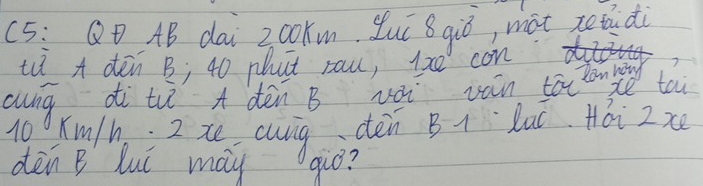 C5: QĐ AB dài 200km. Lúc 8 giờ, một xe tải đi
từ A đến B; 40 phút sau, 1 xe con đường
cũng đi từ A đến B với vận tốc lớn hơn xe tải
10 km/h. 2 xe cùng đến B 1 lúc. Hỏi 2 xe
đến B lúc mấy giờ?